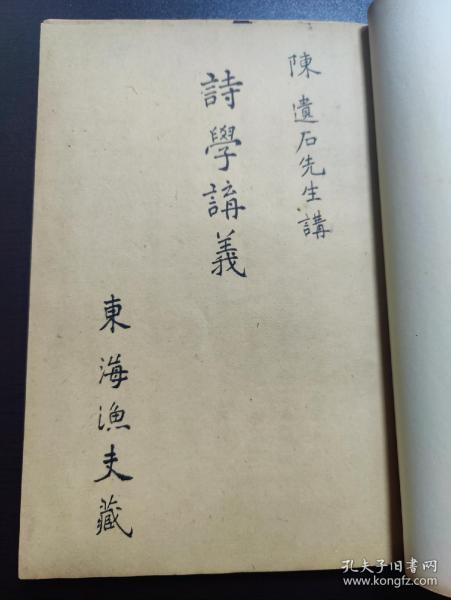 陳遺石先生講
詩學講義
東海漁夫藏
孔夫子旧书网
www.kongfz.com